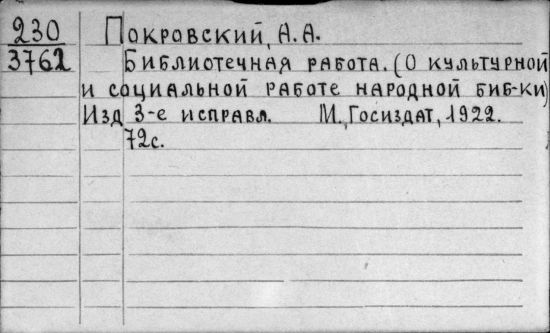 230 Покровский, А.А.
3762 Библиотечная работа. (О культурной
и социальной работе народной биб-ки)
Изд 3-е исправл. М., Госиздат, 1922.
72с.